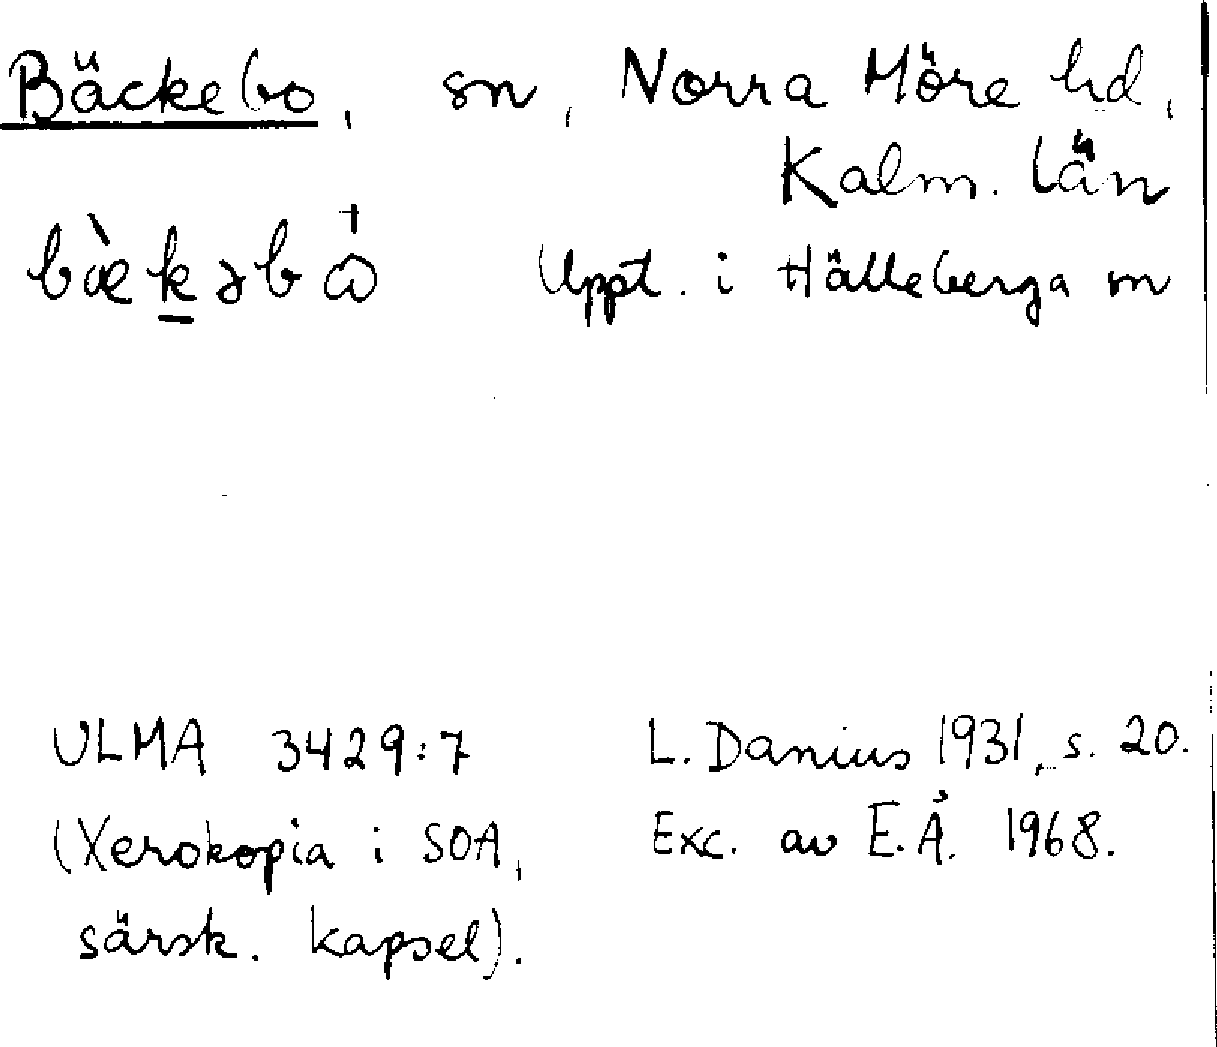 Bäckebo, sn, Norra Möre hd,
Kalm. län
bæ̀kəbɷ Uppt. i Hälleberga sn
ULMA 3429:7 L. Danius 1931, s. 20.
(Xerokopia i SOA, Exc. av E.Å. 1968.
särsk. kapsel).